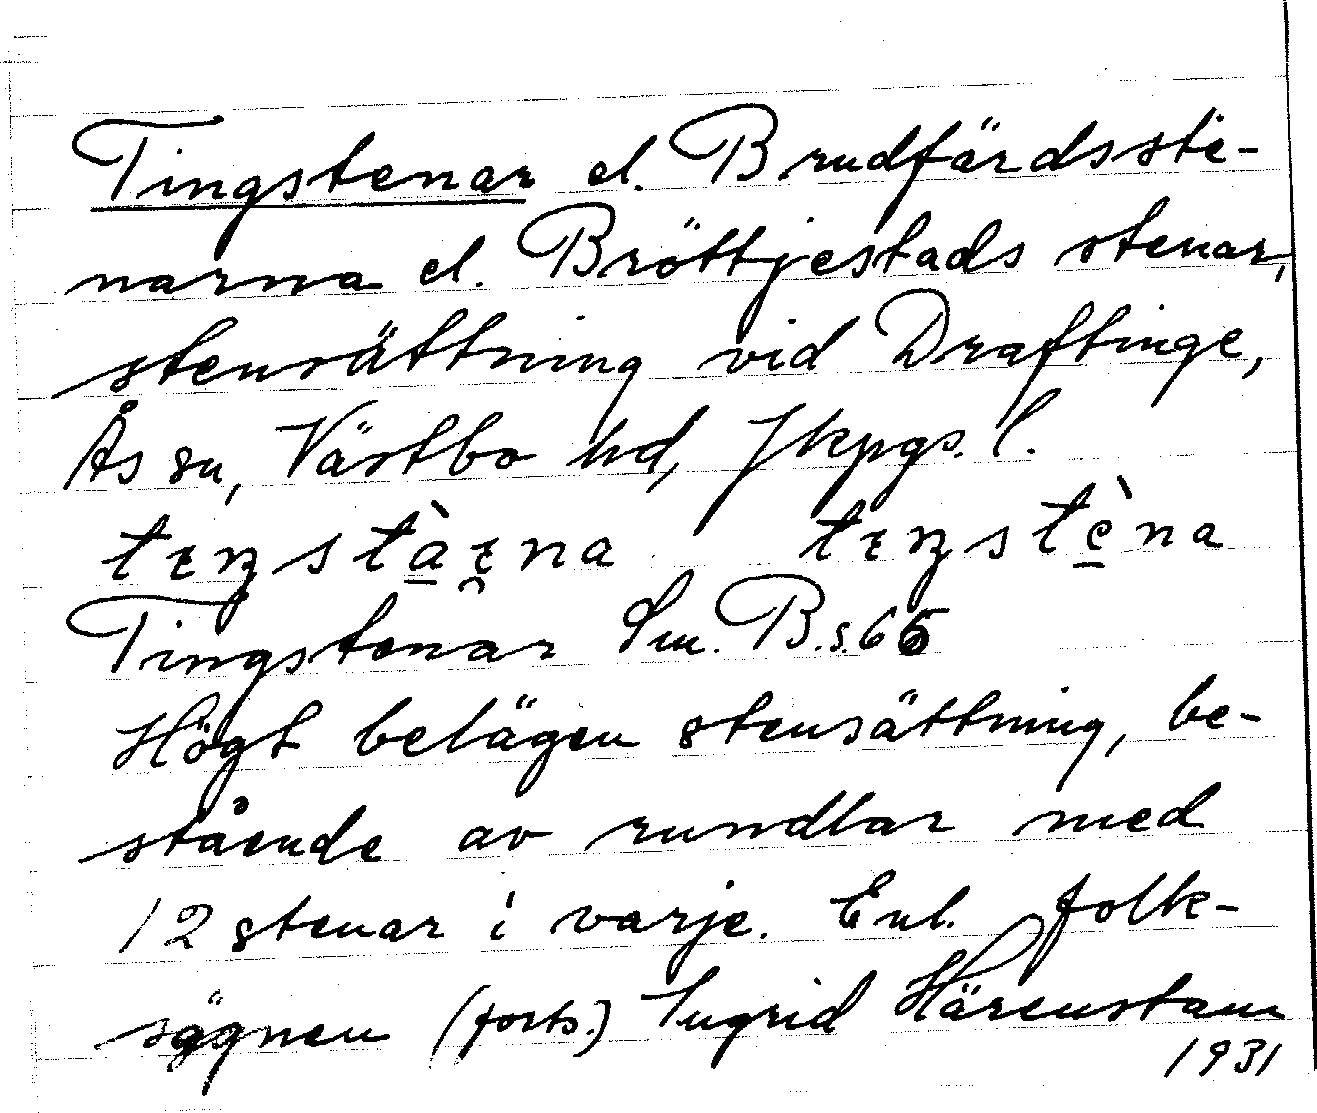 Tingstenar el. Brudfärdsste-
narna el. Bröttjestads stenar,
stensättning vid Draftinge,
Ås sn, Västbo hd, Jkpgs. l.
tɪŋstàɛ̯na tɪŋstèna
Tingstenar Sm. B. s. 66
Högt belägen stensättning, be-
stående av rundlar med
12 stenar i varje. Enl. folk-
sägnen (forts.) Ingrid Härenstam
1931